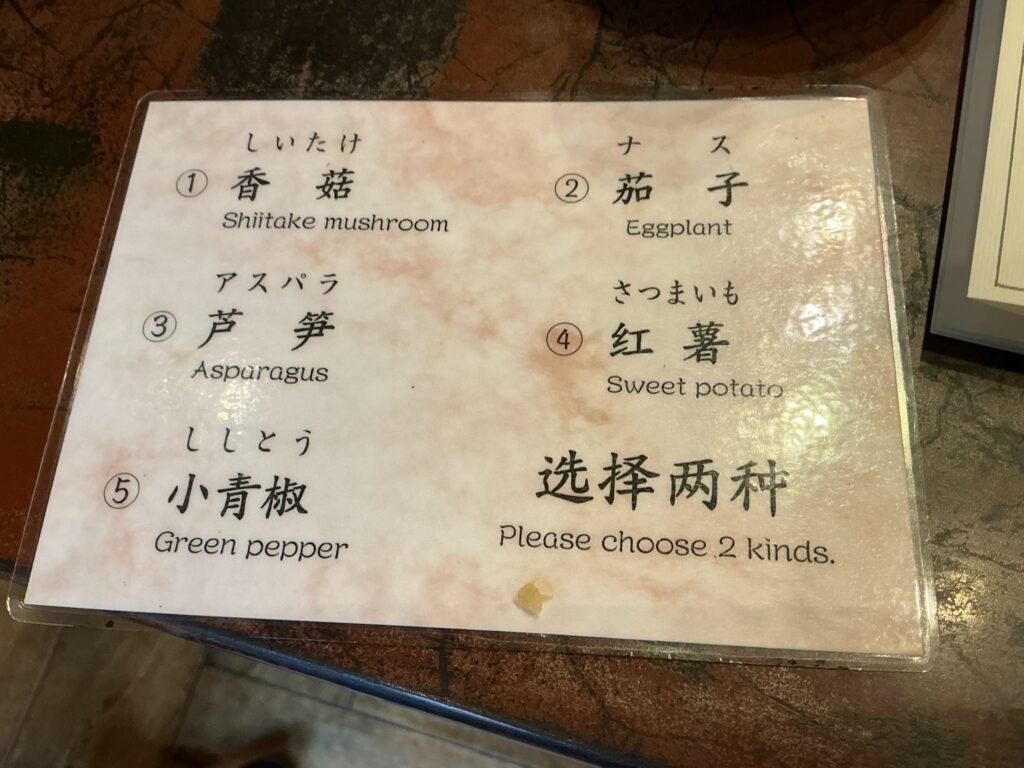 しいたけ
① 香菇
Shiitake mushroom
ナス
② 茄子
Eggplant
アスパラ
③ 芦笋
Asparagus
さつまいも
④ 红薯
Sweet potato
ししとう
⑤ 小青椒
Green pepper
选择两种
Please choose 2 kinds.